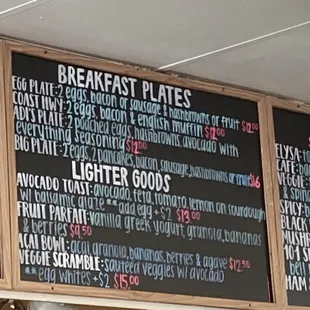 BREAKFAST PLATES
EGG PLATE: 2 eggs, bacon or sausage & hashbrowns or fruit $12.00
COAST HWY: 2 eggs, bacon & english muffin $12.00
ADI'S PLATE: 2 poached eggs, hashbrowns, avocado with
everything seasoning $12.00
BIG PLATE: 2 eggs, 2 pancakes, bacon, sausage, hashbrowns or fruit $16
LIGHTER GOODS
AVOCADO TOAST: avocado, feta, tomato, lemon on sourdough
w/ balsamic glaze **add egg + $2 $13.00
FRUIT PARFAIT: Vanilla greek yogurt, granola, bananas
& berries $9.50
ACAI BOWL: acai granola, bananas, berries & agave $12.50
VEGGIE SCRAMBLE: sauteed veggies w/ avocado
**egg whites +$2 $15.00
ELYSA
VEGGIE
SPICY
BLACK
MUSH
101 S
HAM